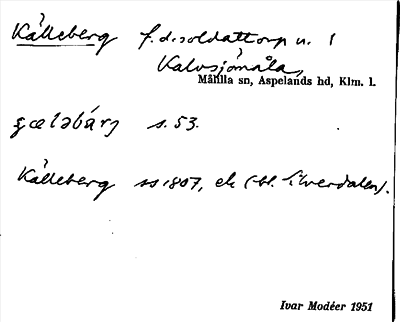 Källeberg f. d. soldattorp u. 1
Kalvsjömåla,
Målilla sn, Aspelands hd, Klm. l.
s. 53.
Källeberg ss 1807, ek (bl. Silverdalen).
Ivar Modéer 1951